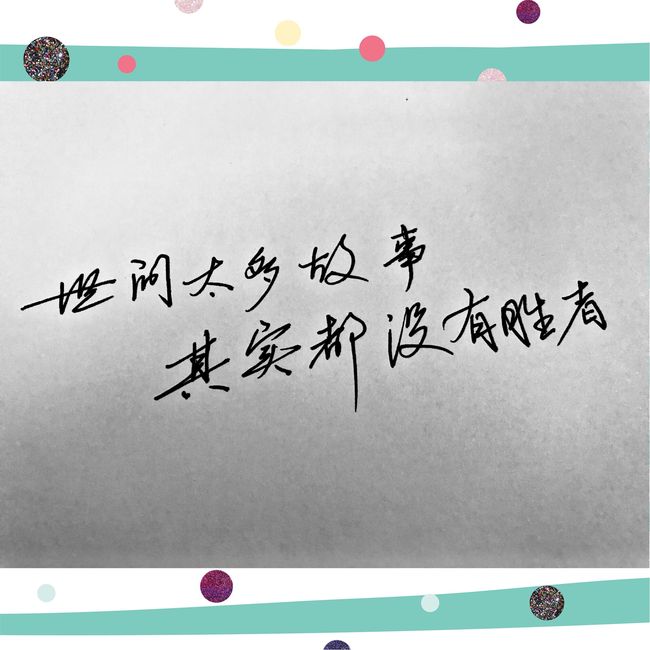 世间太多故事
其实都没有胜者